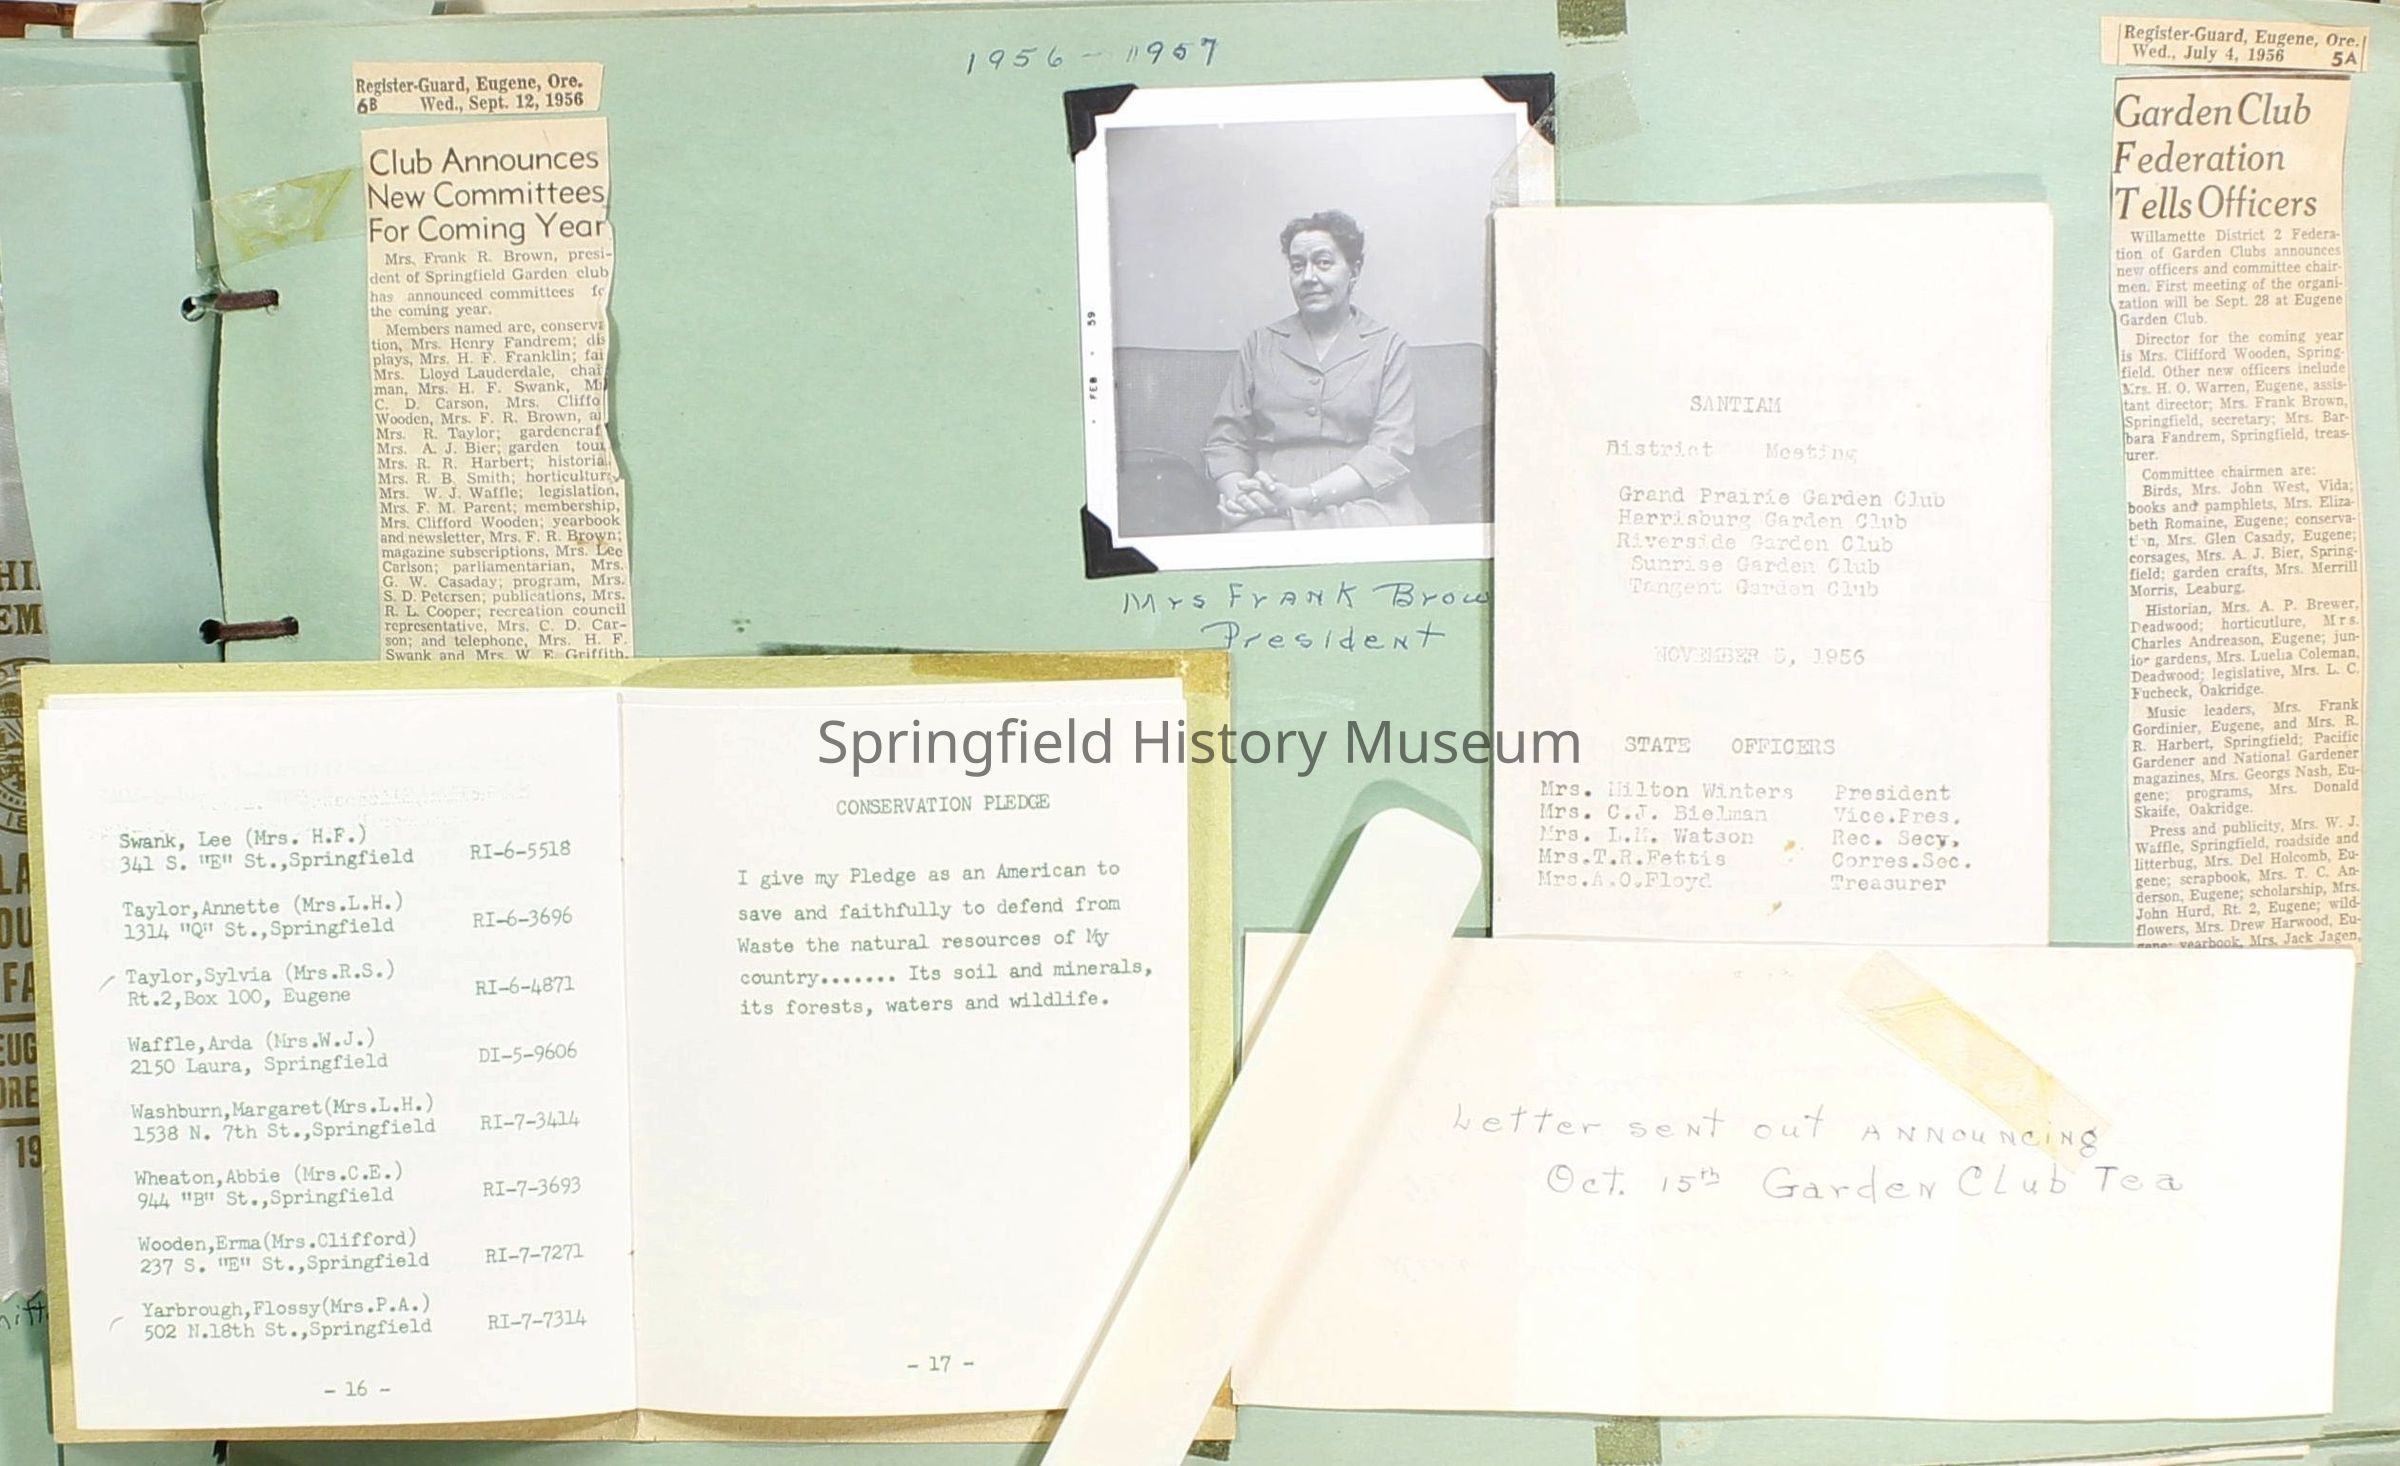 1956 - 1957
Register-Guard, Eugene, Ore.
6B Wed., Sept. 12, 1956
Club Announces
New Committees
For Coming Year
Mrs. Frank R. Brown, presi-
dent of Springfield Garden club
has announced committees fo
the coming year.
Members named are, conserva
tion, Mrs. Henry Fandrem; dis
plays, Mrs. H. F. Franklin; fai
Mrs. Lloyd Lauderdale, chai
man, Mrs. H. F. Swank, M
C. D. Carson, Mrs. Cliffo
Wooden, Mrs. F. R. Brown, a
Mrs. R. Taylor; gardencraf
Mrs. A. J. Bier; garden tou
Mrs. R. R. Harbert; historia
Mrs. R. B. Smith; horticultur
Mrs. W. J. Waffle; legislation,
Mrs. F. M. Parent; membership,
Mrs. Clifford Wooden; yearbook
and newsletter, Mrs. F. R. Brown;
magazine subscriptions, Mrs. Lee
Carlson; parliamentarian, Mrs.
G. W. Casaday; program, Mrs.
S. D. Petersen; publications, Mrs.
R. L. Cooper; recreation council
representative, Mrs. C. D. Car-
son; and telephone, Mrs. H. F.
Swank and Mrs. W. E. Griffith.
FEB . 59
Mrs Frank Brow
President
SANTIAM
District Meeting
Grand Prairie Garden Club
Harrisburg Garden Club
Riverside Garden Club
Sunrise Garden Club
Tangent Garden Club
NOVEMBER 5, 1956
STATE OFFICERS
Mrs. Milton Winters President
Mrs. C.J. Bielman Vice.Pres.
Mrs. L.M. Watson Rec. Secy.
Mrs.T.R.Fettis Corres.Sec.
Mrs.A.O.Floyd Treasurer
Register-Guard, Eugene, Ore.
Wed., July 4, 1956 5A
Garden Club
Federation
Tells Officers
Willamette District 2 Federa-
tion of Garden Clubs announces
new officers and committee chair-
men. First meeting of the organi-
zation will be Sept. 28 at Eugene
Garden Club.
Director for the coming year
is Mrs. Clifford Wooden, Spring-
field. Other new officers include
Mrs. H. O. Warren, Eugene, assis-
tant director; Mrs. Frank Brown,
Springfield, secretary; Mrs. Bar-
bara Fandrem, Springfield, treas-
urer.
Committee chairmen are:
Birds, Mrs. John West, Vida;
books and pamphlets, Mrs. Eliza-
beth Romaine, Eugene; conserva-
tion, Mrs. Glen Casady, Eugene;
corsages, Mrs. A. J. Bier, Spring-
field; garden crafts, Mrs. Merrill
Morris, Leaburg.
Historian, Mrs. A. P. Brewer,
Deadwood; horticutlure, Mrs.
Charles Andreason, Eugene; jun-
ior gardens, Mrs. Luella Coleman,
Deadwood; legislative, Mrs. L. C.
Fucheck, Oakridge.
Music leaders, Mrs. Frank
Gordinier, Eugene, and Mrs. R.
R. Harbert, Springfield; Pacific
Gardener and National Gardener
magazines, Mrs. Georgs Nash, Eu-
gene; programs, Mrs. Donald
Skaife, Oakridge.
Press and publicity, Mrs. W. J.
Waffle, Springfield, roadside and
litterbug, Mrs. Del Holcomb, Eu-
gene; scrapbook, Mrs. T. C. An-
derson, Eugene; scholarship, Mrs.
John Hurd, Rt. 2, Eugene; wild-
flowers, Mrs. Drew Harwood, Eu-
gene; yearbook, Mrs. Jack Jagen,
Springfield History Museum
Swank, Lee (Mrs. H.F.)
341 S. "E" St.,Springfield RI-6-5518
Taylor,Annette (Mrs.L.H.)
1314 "Q" St.,Springfield RI-6-3696
Taylor,Sylvia (Mrs.R.S.)
Rt.2,Box 100, Eugene RI-6-4871
Waffle,Arda (Mrs.W.J.)
2150 Laura, Springfield DI-5-9606
Washburn,Margaret(Mrs.L.H.)
1538 N. 7th St.,Springfield RI-7-3414
Wheaton,Abbie (Mrs.C.E.)
944 "B" St.,Springfield RI-7-3693
Wooden,Erma(Mrs.Clifford)
237 S. "E" St.,Springfield RI-7-7271
Yarbrough,Flossy(Mrs.P.A.)
502 N.18th St.,Springfield RI-7-7314
- 16 -
CONSERVATION PLEDGE
I give my Pledge as an American to
save and faithfully to defend from
Waste the natural resources of My
country....... Its soil and minerals,
its forests, waters and wildlife.
- 17 -
Letter sent out announcing
Oct. 15th Garden Club Tea